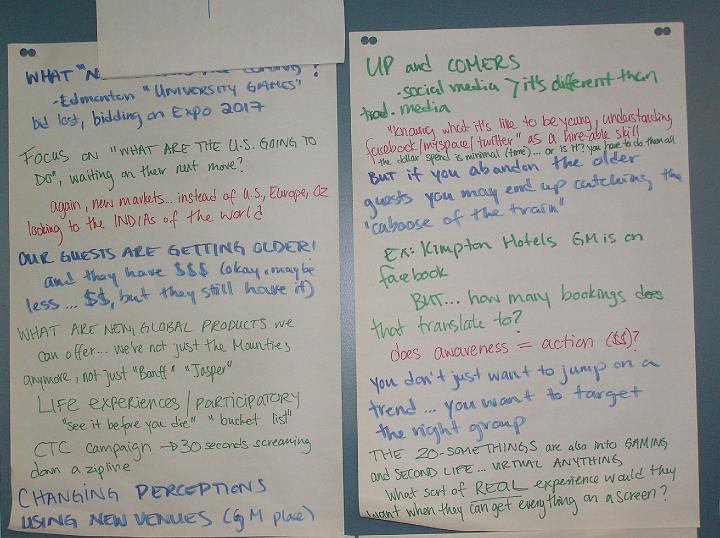 WHAT "N
-Edmonton "UNIVERSITY GAMES"
bid lost, bidding on Expo 2017
FOCUS ON "WHAT ARE THE U.S. GOING TO
DO", waiting on their next move?
again, new markets... instead of U.S., Europe, Oz
looking to the INDIAs of the world
OUR GUESTS ARE GETTING OLDER!
and they have $$$ (okay, maybe
less... $$, but they still have it)
WHAT ARE NEW, GLOBAL PRODUCTS we
can offer... we're not just the Mounties
anymore, not just "Banff" "Jasper"
LIFE experiences / PARTICIPATORY
"see it before you die" "bucket list"
CTC campaign → 30 seconds screaming
down a zipline
CHANGING PERCEPTIONS
USING NEW VENUES (GM place)
UP and COMERS
- social media > it's different than
trad. media
"knowing what it's like to be young, understanding
facebook/myspace/twitter" as a hire-able skill
the dollar spend is minimal (time)... or is it? you have to do them all
BUT if you abandon the older
guests you may end up catching the
"caboose of the train"
EX: Kimpton Hotels GM is on
facebook
BUT... how many bookings does
that translate to?
does awareness = action ($$)?
you don't just want to jump on a
trend... you want to target
the right group
THE 20-SOMETHINGS are also into GAMING
and SECOND LIFE... VIRTUAL ANYTHING
What sort of REAL experience would they
want when they can get everything on a screen?